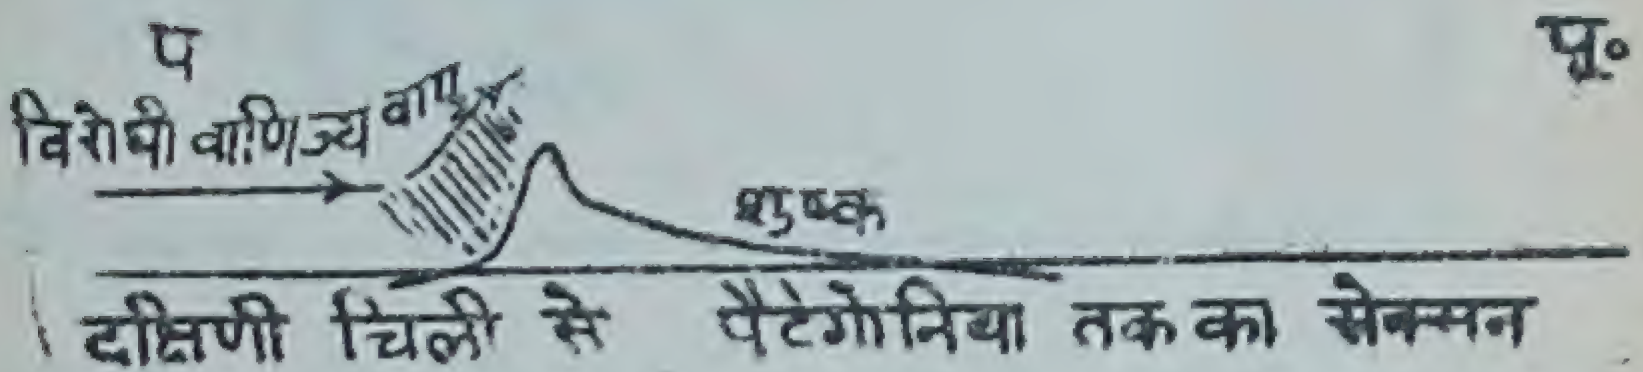 प
पू०
विरोधी वाणिज्य वायु
शुष्क
दक्षिणी चिली से पैटेगोनिया तक का सेक्सन